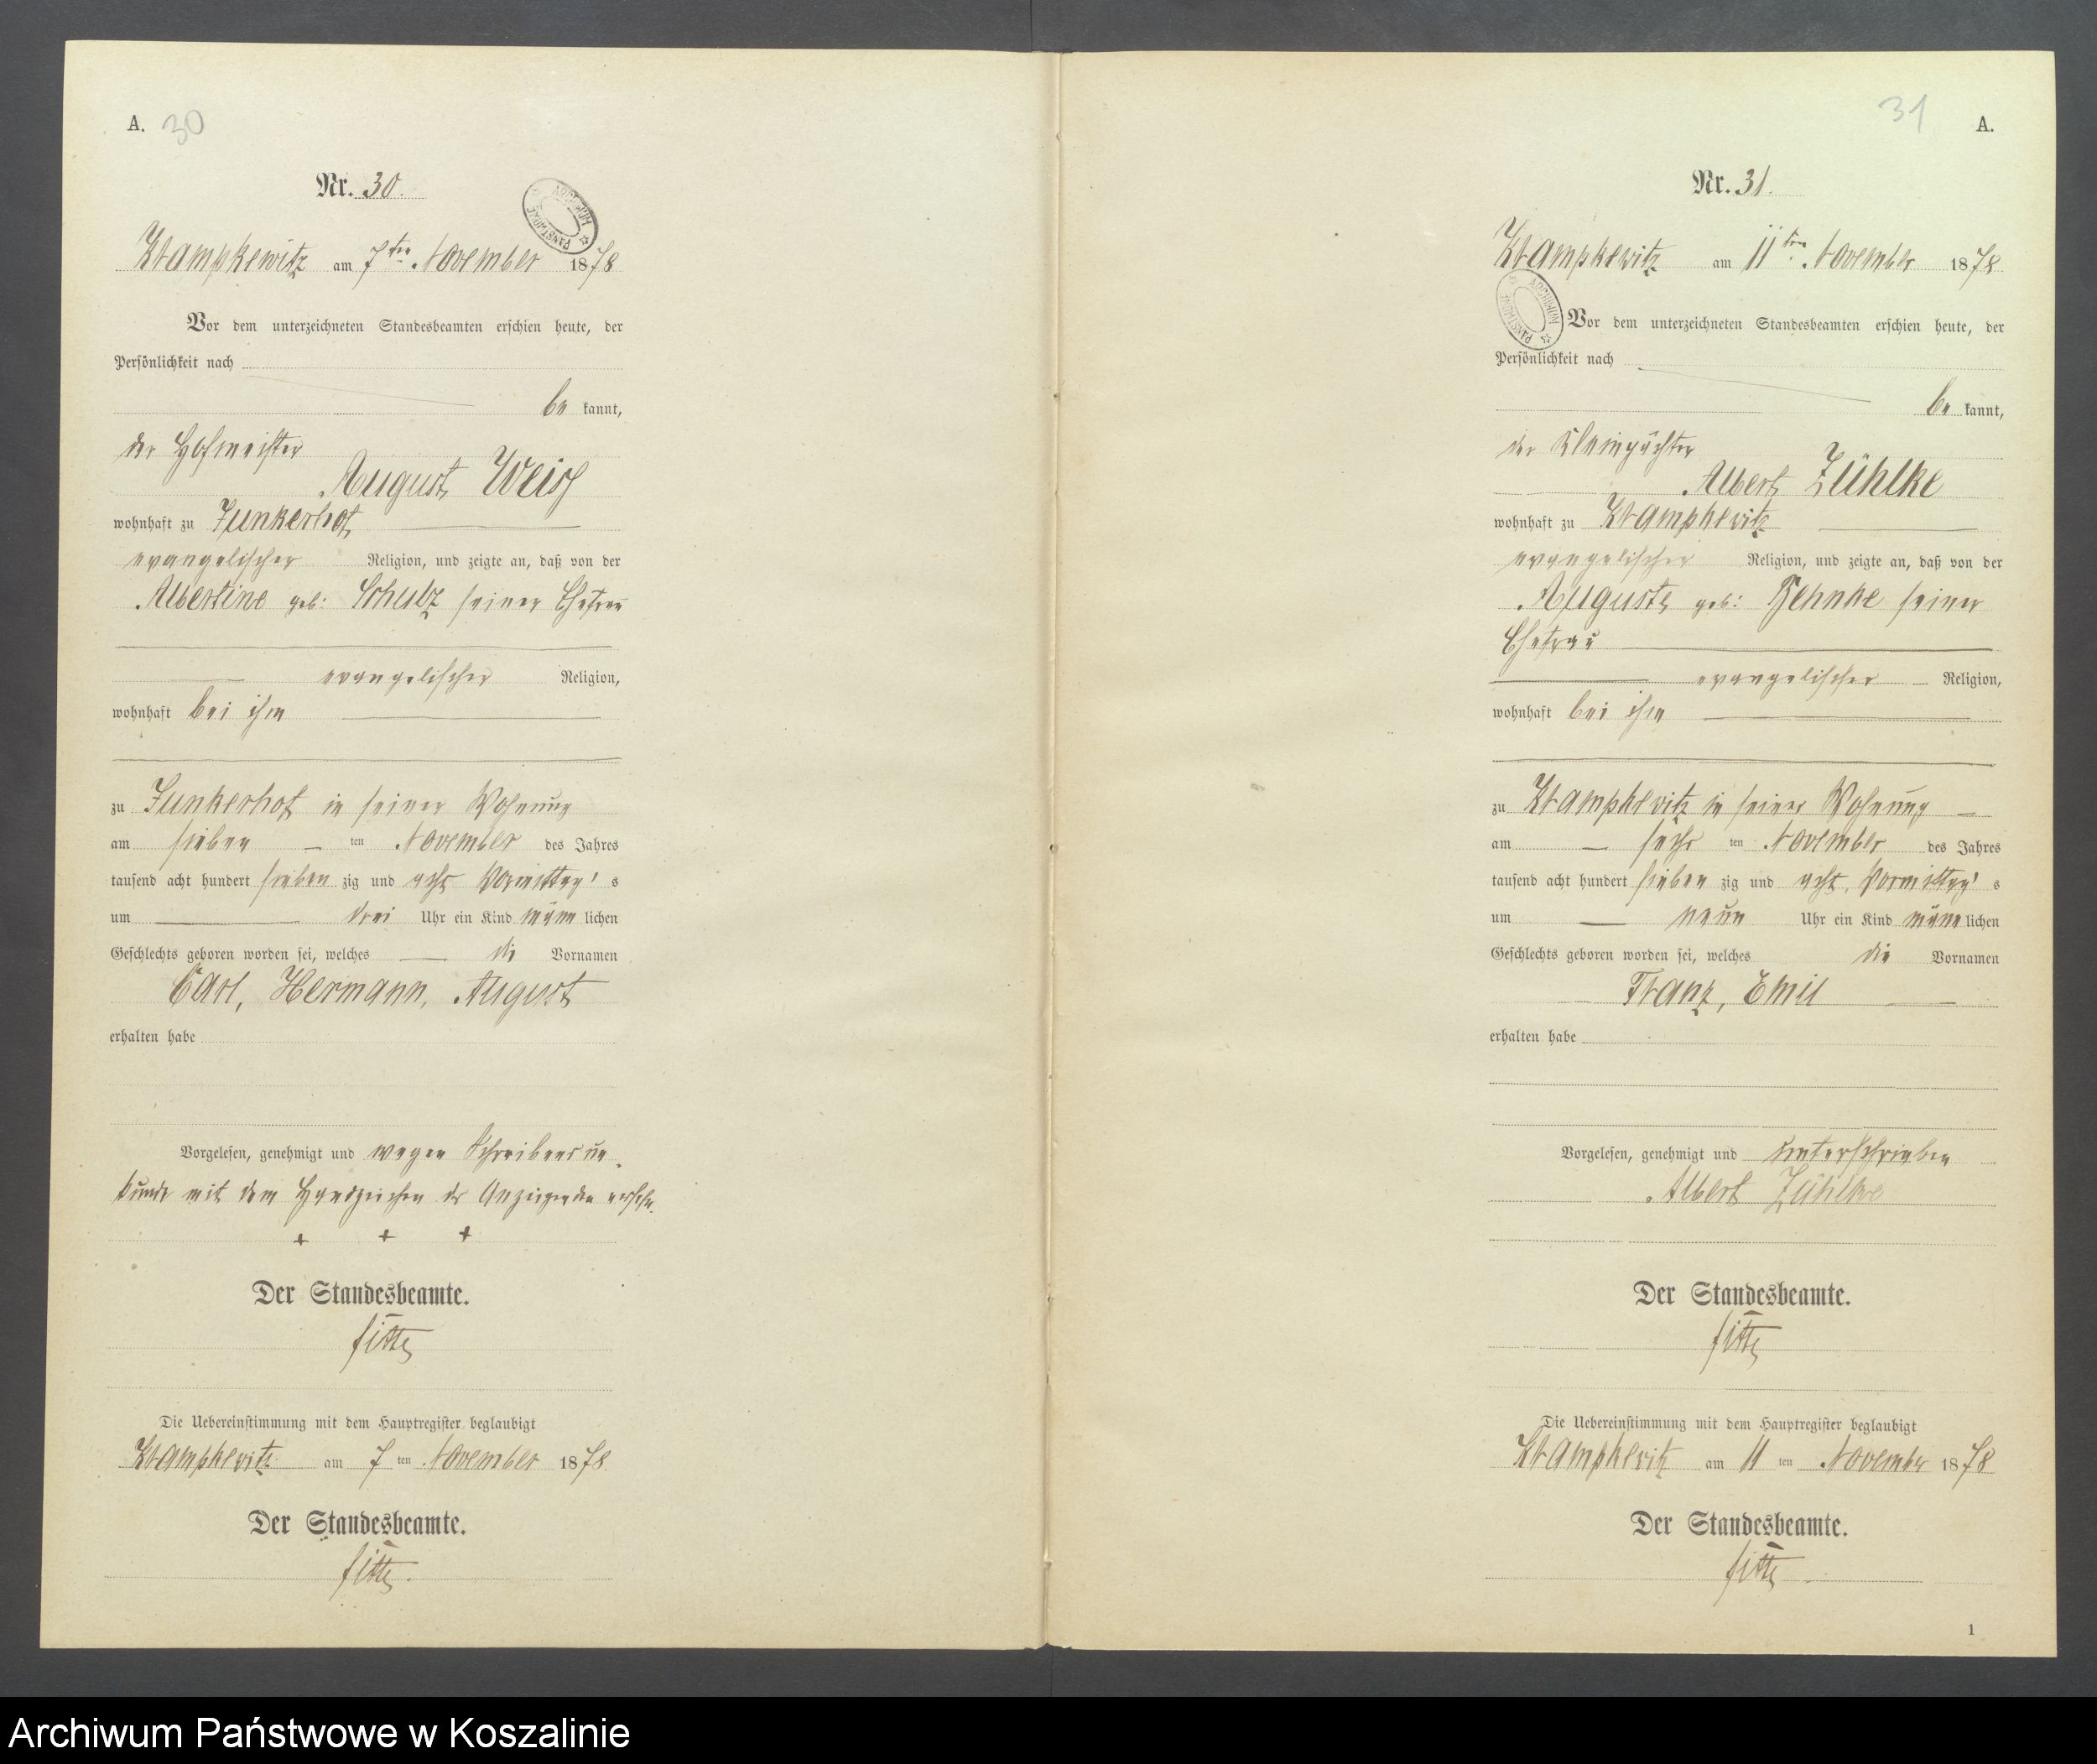 A. 30
Nr. 30.
ARCHIWUM PAŃSTWOWE
Krampkewitz am 7ten November 1878
Vor dem unterzeichneten Standesbeamten erschien heute, der
Persönlichkeit nach
be kannt,
der Hofmeister
August Weiß
wohnhaft zu Junkerhof
evangelischer Religion, und zeigte an, daß von der
Albertine geb: Schulz seiner Ehefrau
evangelischer Religion,
wohnhaft bei ihm
zu Junkerhof in seiner Wohnung
am sieben ten November des Jahres
tausend acht hundert sieben zig und acht Vormittag's
um drei Uhr ein Kind männ lichen
Geschlechts geboren worden sei, welches die Vornamen
Carl, Hermann, August
erhalten habe
Vorgelesen, genehmigt und wegen Schreibensun
kunde mit dem Handzeichen des Anzeigenden versehn.
+ + +
Der Standesbeamte.
Der Uebereinstimmung mit dem Hauptregister beglaubigt
Krampkewitz am 7 ten November 1878
Der Standesbeamte.
31 A.
Nr. 31.
Krampkewitz am 11ten November 1878
ARCHIWUM PAŃSTWOWE
Vor dem unterzeichneten Standesbeamten erschien heute, der
Persönlichkeit nach
be kannt,
der Kleinpächter
Albert Zühlke
wohnhaft zu Krampkewitz
evangelischer Religion, und zeigte an, daß von der
Auguste geb: Behnke seiner
Ehefrau
evangelischer Religion,
wohnhaft bei ihm
zu Krampkewitz in seiner Wohnung
am sechs ten November des Jahres
tausend acht hundert sieben zig und acht, Vormittag's
um neun Uhr ein Kind männ lichen
Geschlechts geboren worden sei, welches die Vornamen
Franz, Emil
erhalten habe
Vorgelesen, genehmigt und unterschrieben
Albert Zühlke
Der Standesbeamte.
Die Uebereinstimmung mit dem Hauptregister beglaubigt
Krampkewitz am 11 ten November 1878
Der Standesbeamte.
1
Archiwum Państwowe w Koszalinie